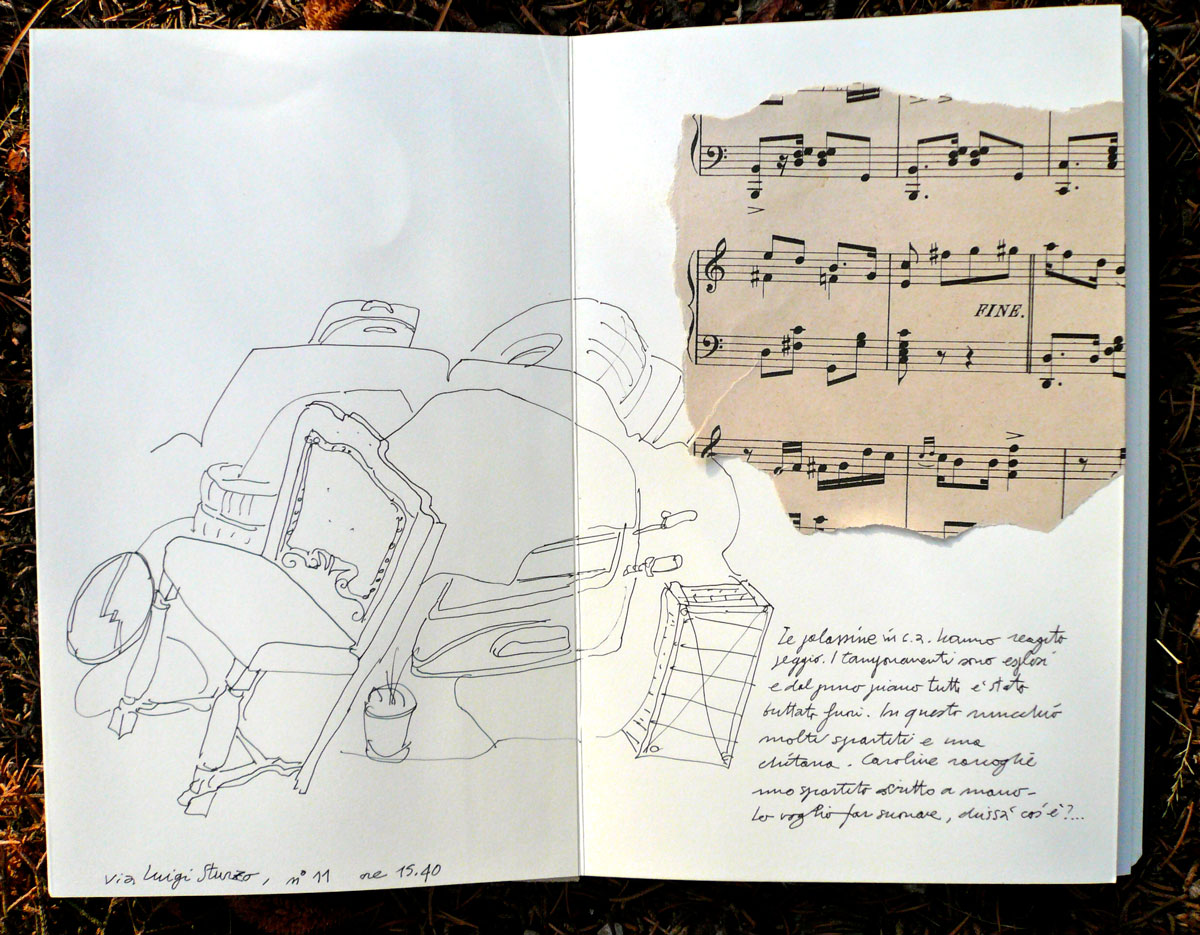 FINE.
Le palazzine in c.a. hanno reagito
peggio. I tamponamenti sono esplosi
e dal primo piano tutto è stato
buttato fuori. In questo mucchio
molti spartiti e una
chitarra. Caroline raccoglie
uno spartito scritto a mano -
Lo voglio far suonare, chissà cos'è?...
via Luigi Sturzo, n° 11 ore 15.40